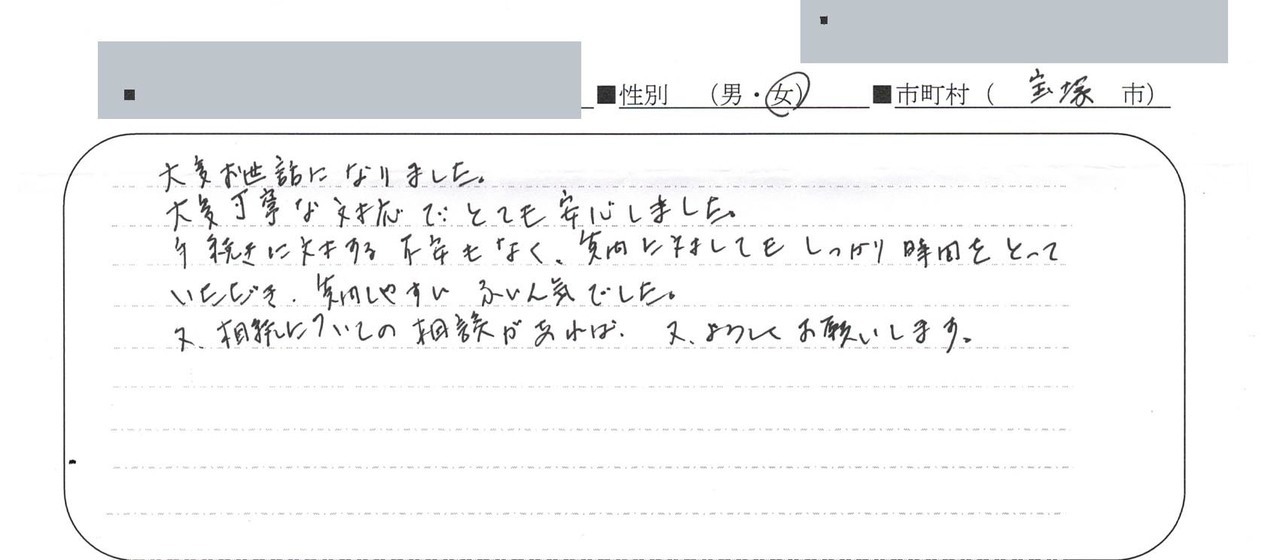 ■性別 (男・女) ■市町村 ( 宝塚 市)
大変お世話になりました。
大変丁寧な対応でとても安心しました。
手続きに対する不安もなく、質問に対してもしっかり時間をとって
いただき、質問しやすいふいん気でした。
又、相続についての相談があれば、又、よろしくお願いします。